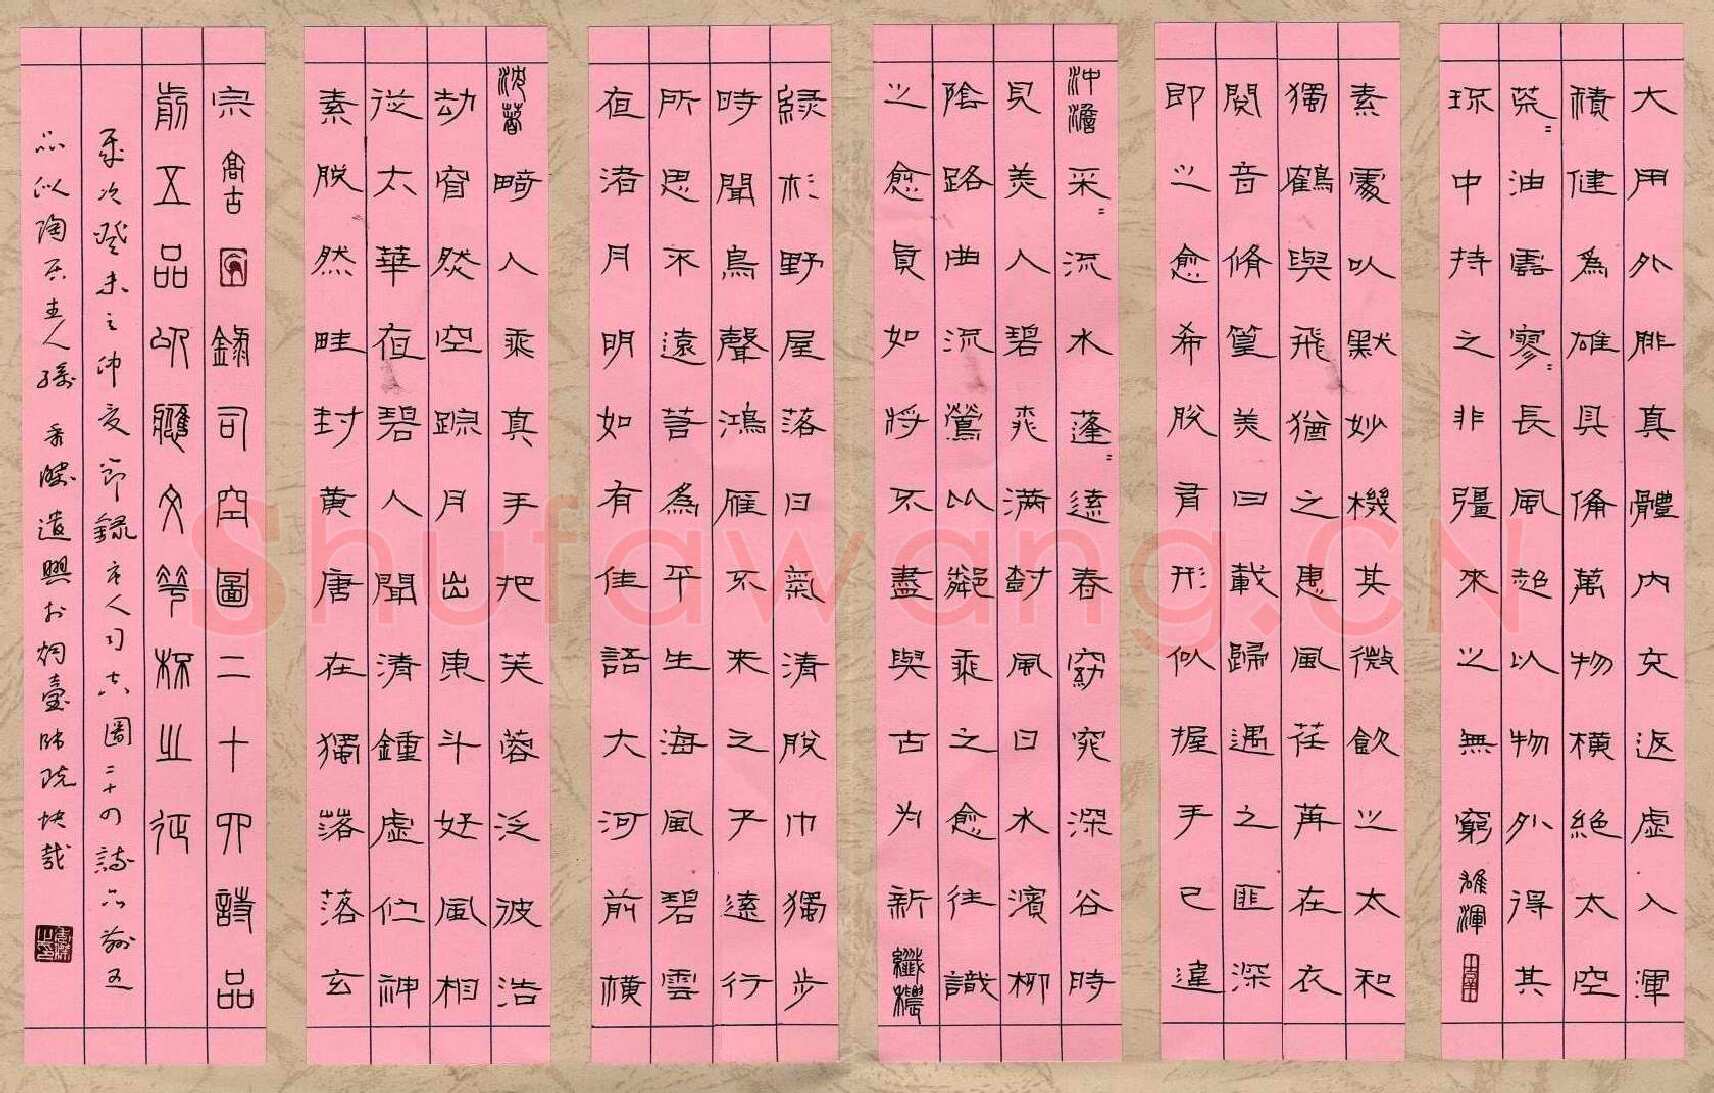 大用外腓真體內充返虛入渾
積健為雄具備萬物橫絕太空
荒=油雲寥=長風超以物外得其
环中持之非彊來之無窮 雄渾
素處以默妙機其微飲之太和
獨鶴與飛猶之惠風荏苒在衣
閱音脩篁美曰載歸遇之匪深
即之愈希脫有形似握手已違
沖澹 采=流水蓬=遠春窈窕深谷時
見美人碧桃滿樹風日水濱柳
陰路曲流鶯比鄰乘之愈往識
之愈真如將不盡與古為新 纖穠
綠杉野屋落日氣清脫巾獨步
時聞鳥聲鴻雁不來之子遠行
所思不遠若為平生海風碧雲
夜渚月明如有佳語大河前橫
沈著 畸人乘真手把芙蓉泛彼浩
劫窅然空踪月出東斗好風相
從太華夜碧人聞清鐘虛佇神
素脫然畦封黃唐在獨落落玄
宗 高古 錄司空圖二十四詩品
前五品以應文華杯之征
歲次癸未之仲夏節錄唐人司空圖二十四詩品前五
品以陶主人孫遣興於臺師院哉
Shufawang.CN